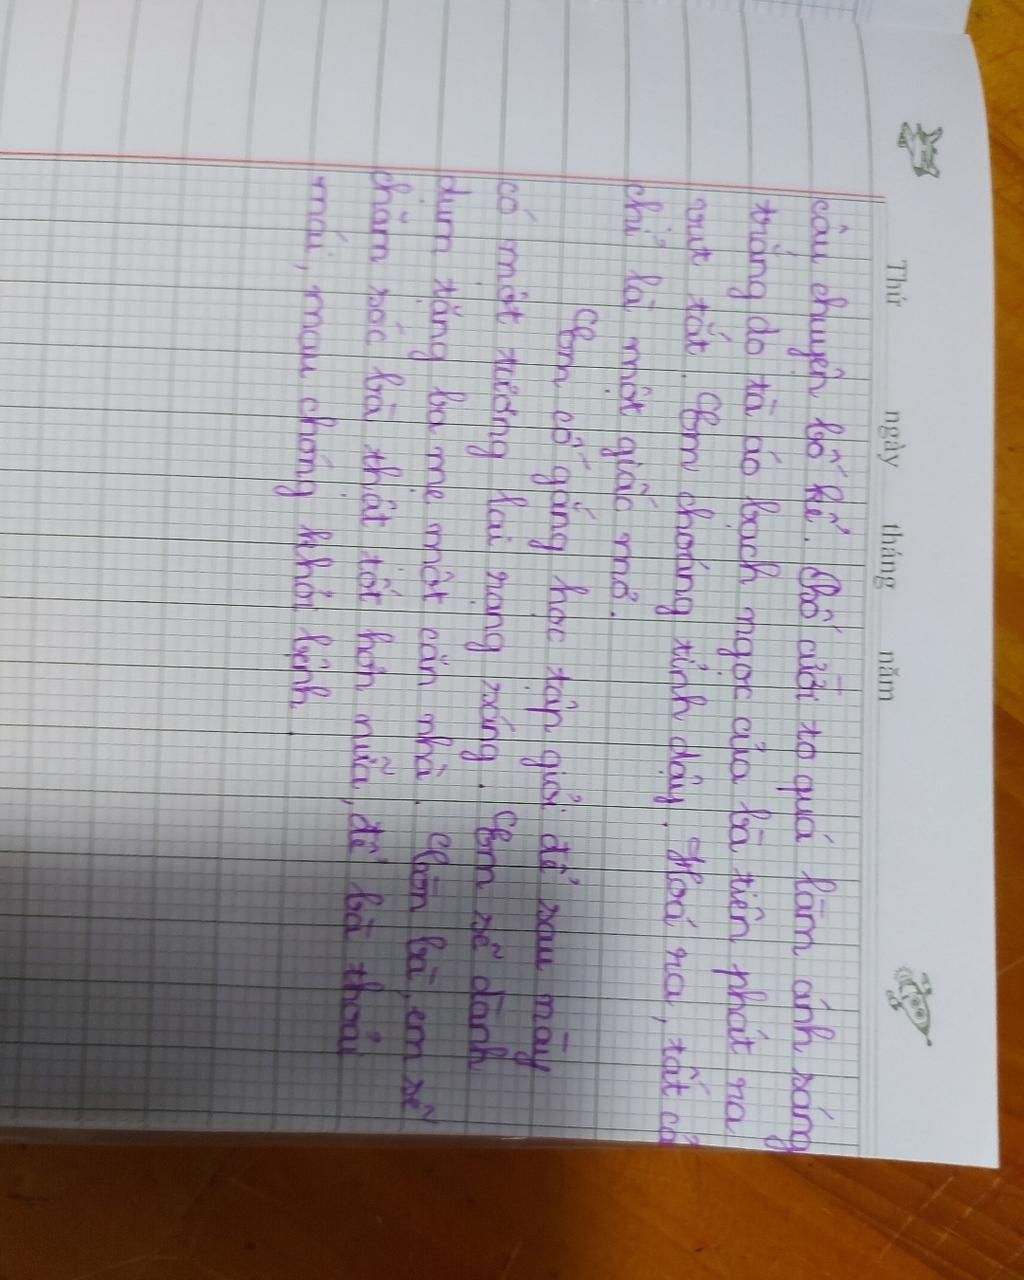 Thứ ngày tháng năm
câu chuyện bố kể. Bố cười to quá làm ánh sáng
trắng do tà áo bạch ngọc của bà tiên phát ra
vụt tắt. Em choáng tỉnh dậy. Hoá ra, tất cả
chỉ là một giấc mơ.
Em cố gắng học tập giỏi để sau này
có một tương lai rạng sáng. Em sẽ dành
dụm tặng ba mẹ một căn nhà. Còn bà, em sẽ
chăm sóc bà thật tốt hơn nữa, để bà thoải
mái, mau chóng khỏi bệnh.